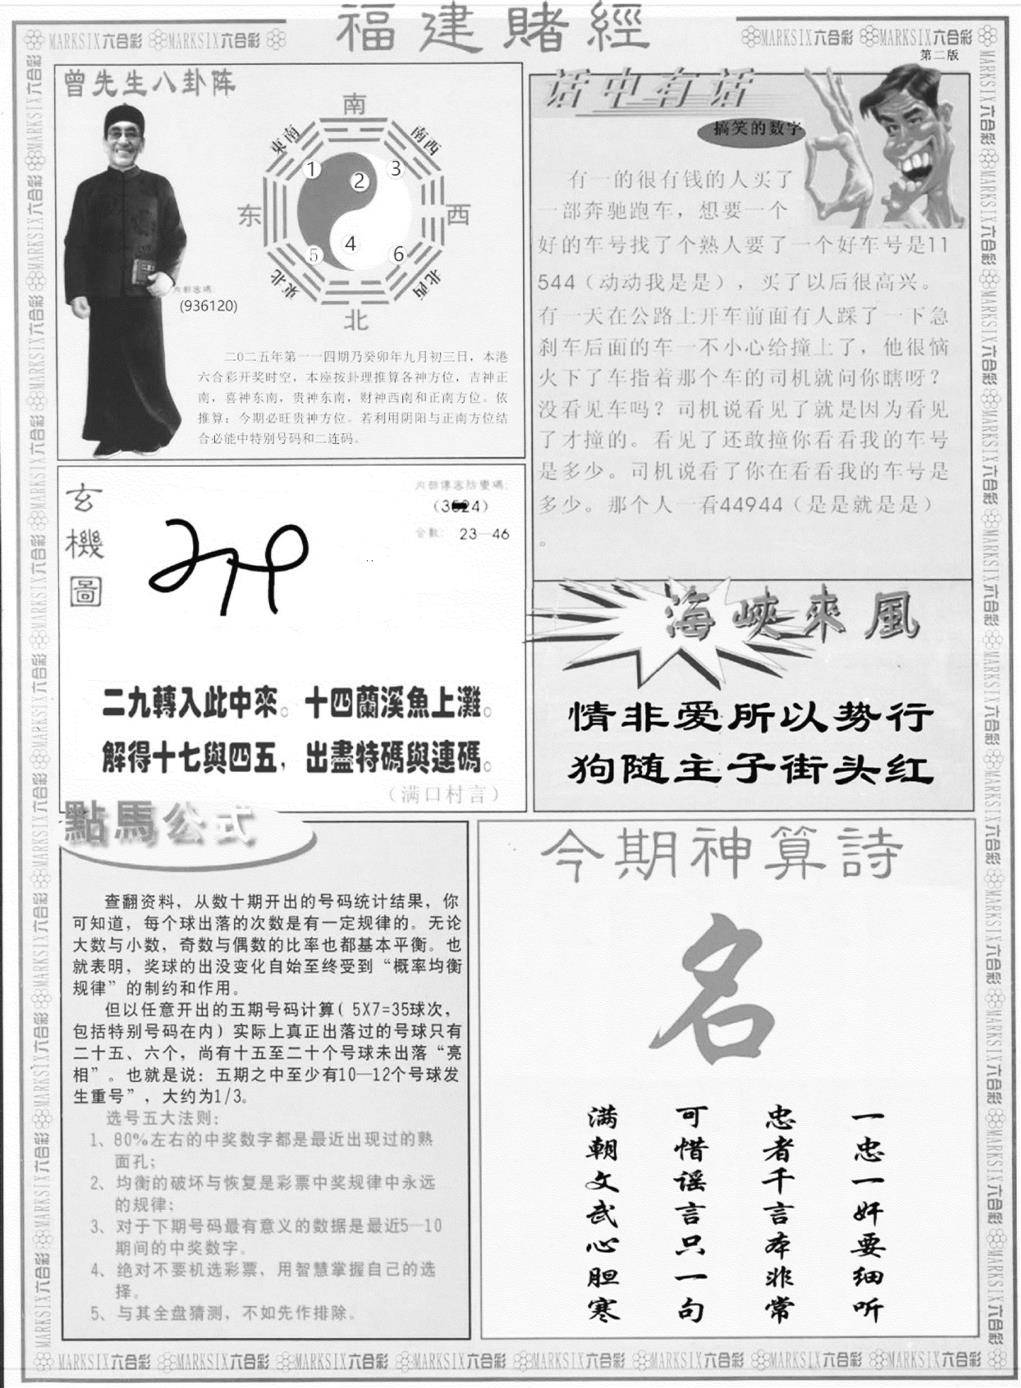 福建賭經
MARKSIX六合彩 MARKSIX六合彩
MARKSIX六合彩 MARKSIX六合彩
第二版
曾先生八卦阵
南
東南
南西
1
2
3
东
西
4
5
6
東北
北西
北
(936120)
二0二五年第一一四期乃癸卯年九月初三日，本港
六合彩开奖时空，本座按卦理推算各神方位，吉神正
南，喜神东南，贵神东南，财神西南和正南方位。依
推算：今期必旺贵神方位。若利用阴阳与正南方位结
合必能中特别号码和二连码。
话中有话
搞笑的数字
有一的很有钱的人买了
一部奔驰跑车，想要一个
好的车号找了个熟人要了一个好车号是11
544（动动我是是），买了以后很高兴。
有一天在公路上开车前面有人踩了一下急
刹车后面的车一不小心给撞上了，他很恼
火下了车指着那个车的司机就问你瞎呀？
没看见车吗？司机说看见了就是因为看见
了才撞的。看见了还敢撞你看看我的车号
是多少。司机说看了你在看看我的车号是
多少。那个人一看44944（是是就是是）
。
玄機圖
合數： 23—46
二九轉入此中來。十四蘭溪魚上灘。
解得十七與四五，出盡特碼與連碼。
（满口村言）
海峽來風
情非爱所以势行
狗随主子街头红
點馬公式
查翻资料，从数十期开出的号码统计结果，你
可知道，每个球出落的次数是有一定规律的。无论
大数与小数，奇数与偶数的比率也都基本平衡。也
就表明，奖球的出没变化自始至终受到“概率均衡
规律”的制约和作用。
但以任意开出的五期号码计算( 5X7=35球次，
包括特别号码在内）实际上真正出落过的号球只有
二十五、六个，尚有十五至二十个号球未出落“亮
相”。也就是说：五期之中至少有10—12个号球发
生重号”，大约为1/3。
选号五大法则：
1、80%左右的中奖数字都是最近出现过的熟
面孔；
2、均衡的破坏与恢复是彩票中奖规律中永远
的规律；
3、对于下期号码最有意义的数据是最近5—10
期间的中奖数字。
4、绝对不要机选彩票，用智慧掌握自己的选
择。
5、与其全盘猜测，不如先作排除。
今期神算詩
名
一忠一奸要细听
忠者千言本非常
可惜谣言只一句
满朝文武心胆寒
MARKSIX六合彩 MARKSIX六合彩 MARKSIX六合彩 MARKSIX六合彩 MARKSIX六合彩 MARKSIX六合彩 MARKSIX六合彩 MARKSIX六合彩